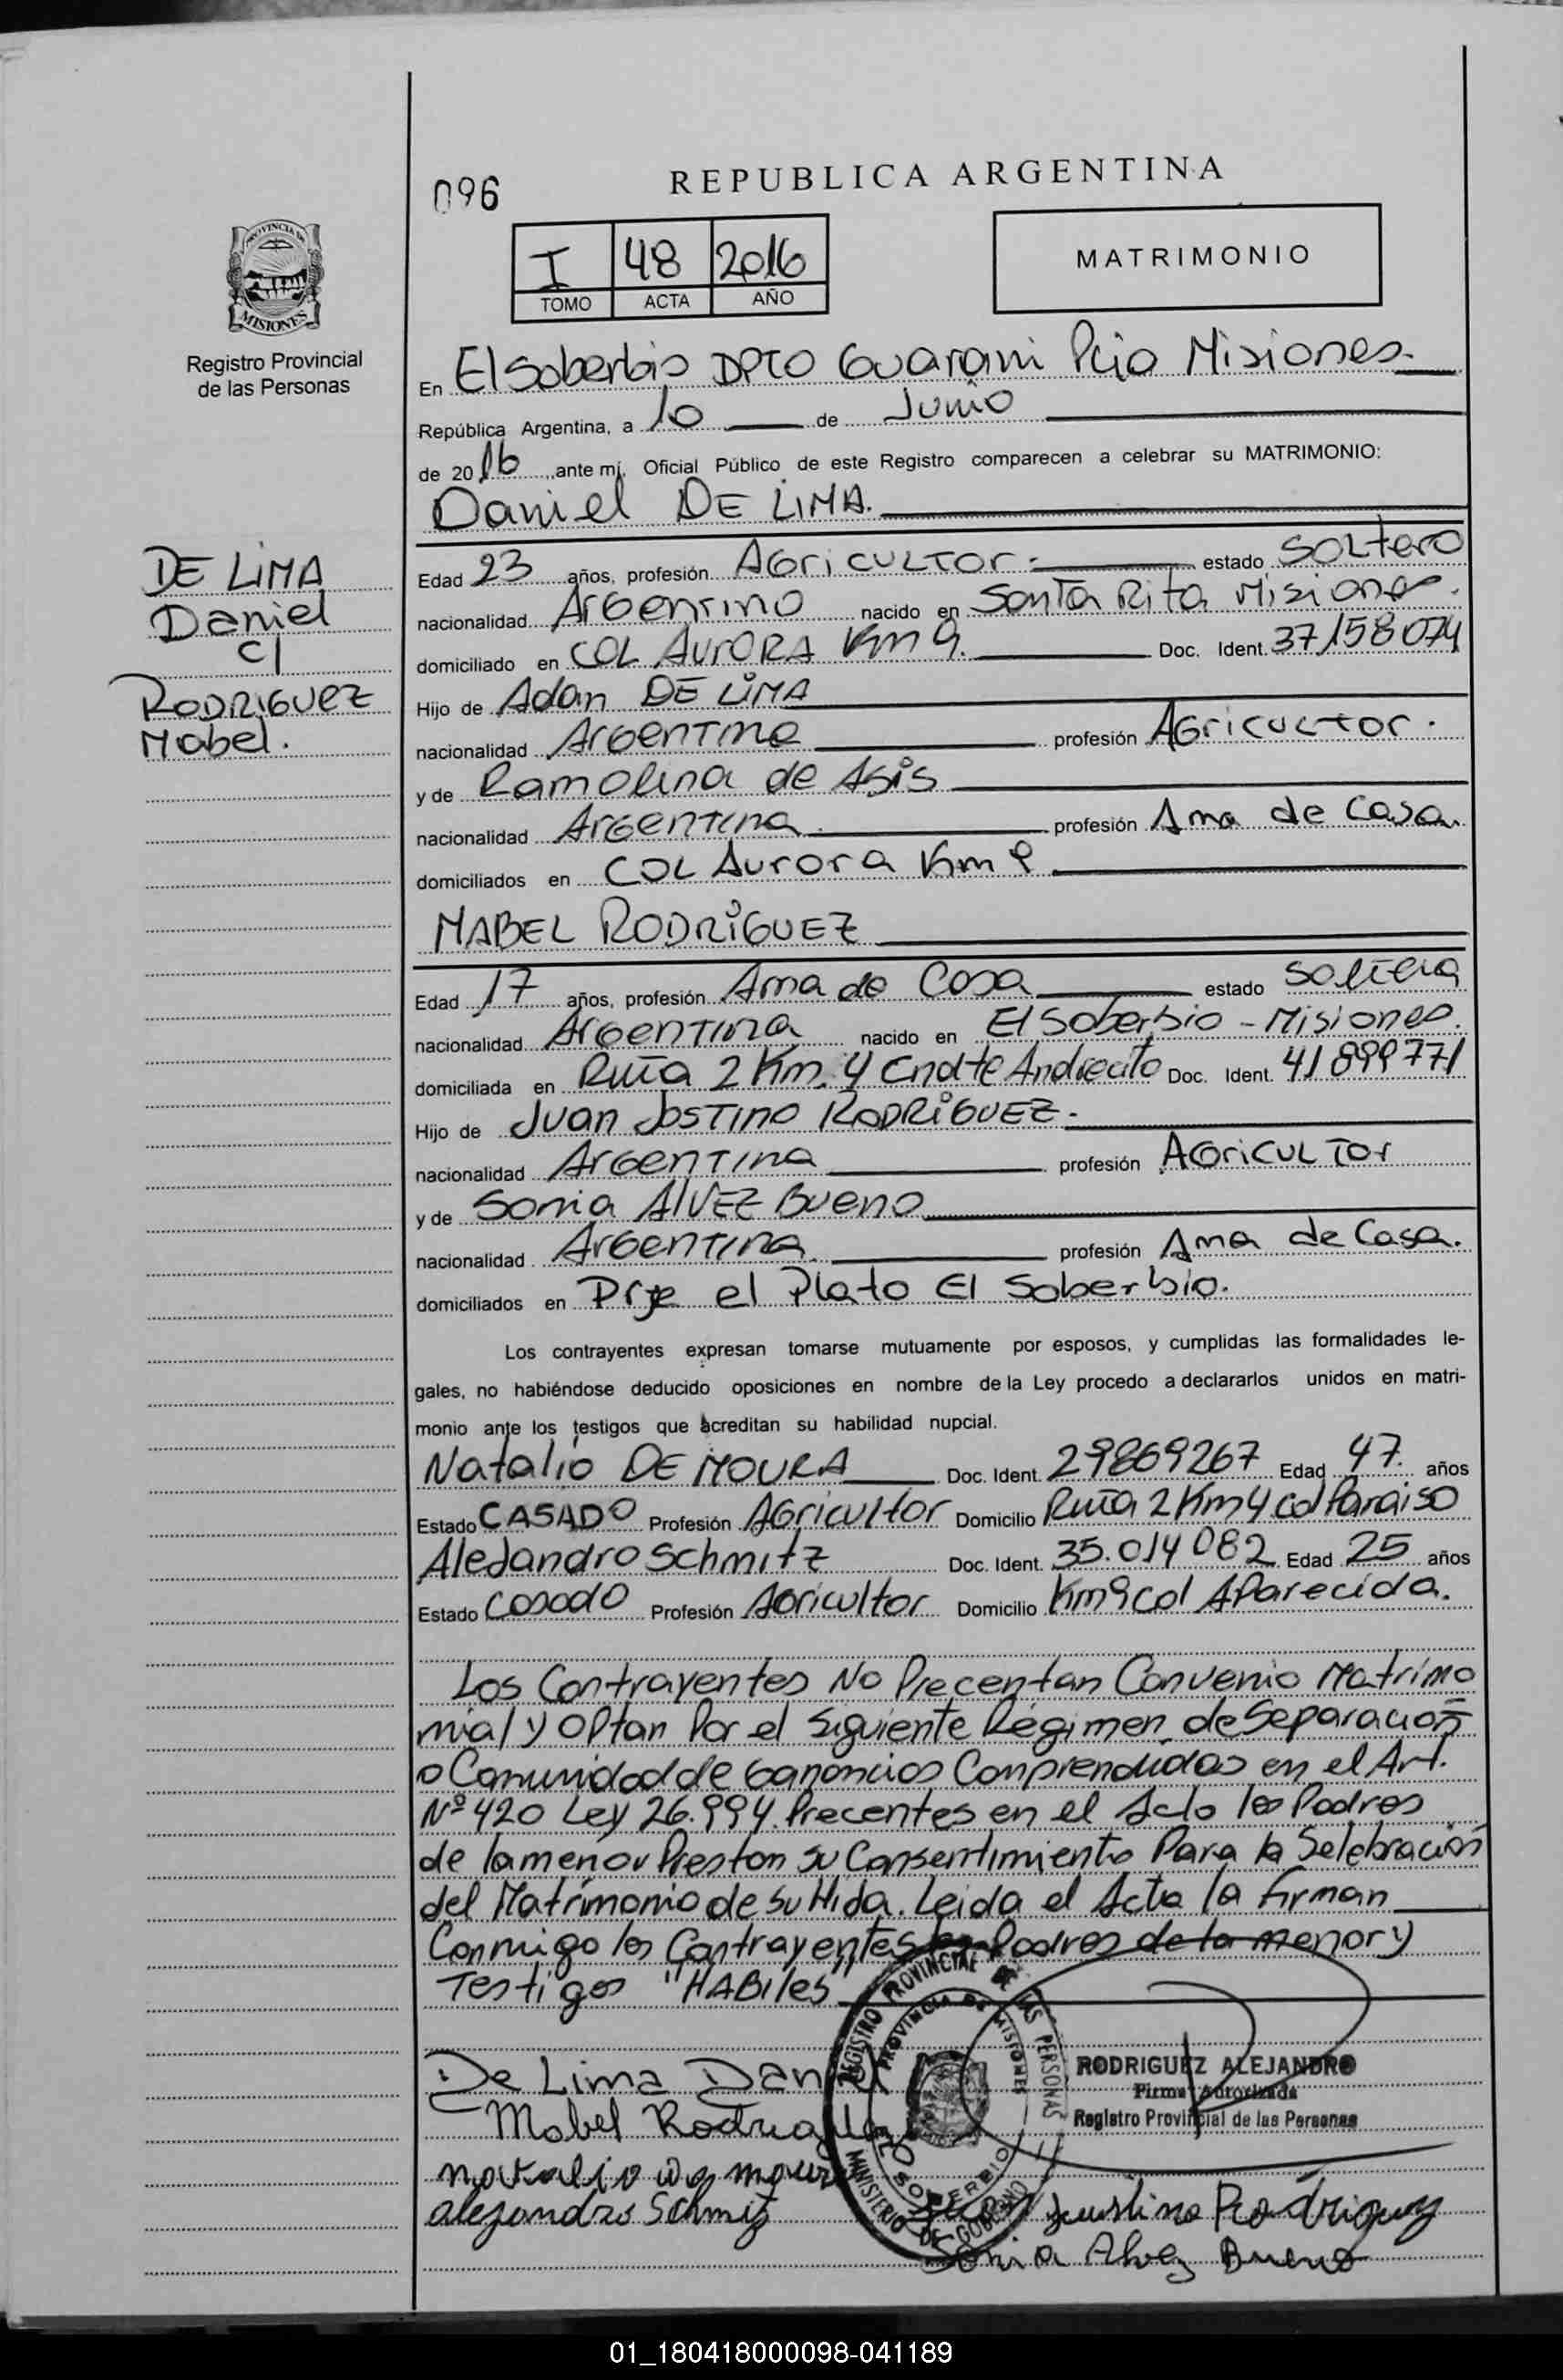 096
REPUBLICA ARGENTINA
PROVINCIA DE
MISIONES
Registro Provincial
de las Personas
I 48 2016
TOMO ACTA AÑO
MATRIMONIO
En El Soberbio DPTO Guarani Pcia Misiones.
República Argentina, a 10 de Junio
de 2016 ante mi, Oficial Público de este Registro comparecen a celebrar su MATRIMONIO:
Daniel DE LIMA.
DE LIMA
Daniel
C/
RODRIGUEZ
Mabel.
Edad 23 años, profesión Agricultor.- estado Soltero
nacionalidad Argentino nacido en Santa Rita Misiones.
domiciliado en COL AURORA Km 9. Doc. Ident. 37158074
Hijo de Adan DE LIMA
nacionalidad Argentina profesión Agricultor.
y de Ramolina de Asis
nacionalidad Argentina. profesión Ama de Casa.
domiciliados en COL Aurora Km 9
MABEL RODRIGUEZ
Edad 17 años, profesión Ama de Casa estado Soltera
nacionalidad Argentina nacido en El Soberbio - Misiones.
domiciliada en Ruta 2 Km. 4 Cndte Andrecito Doc. Ident. 41899771
Hijo de Juan Jostino RODRIGUEZ.-
nacionalidad Argentina profesión Agricultor
y de Sonia Alvez Bueno
nacionalidad Argentina. profesión Ama de Casa.
domiciliados en Prje el Plato El Soberbio.
Los contrayentes expresan tomarse mutuamente por esposos, y cumplidas las formalidades le-
gales, no habiéndose deducido oposiciones en nombre de la Ley procedo a declararlos unidos en matri-
monio ante los testigos que acreditan su habilidad nupcial.
Natalio DE MOURA Doc. Ident. 29869267 Edad 47. años
Estado CASADO Profesión Agricultor Domicilio Ruta 2 Km 4 col Paraiso
Alejandro Schmitz Doc. Ident. 35.014082 Edad 25 años
Estado Casado Profesión Agricultor Domicilio Km 9 Col Aparecida.
Los Contrayentes No Precentan Convenio Matrimo
nial y Optan Por el Siguiente Régimen de Separación
o Comunidad de Ganancias Comprendidas en el Art.
Nº 420 Ley 26.994. Precentes en el Acto los Padres
de la menor Prestan su Consentimiento Para la Selebración
del Matrimonio de su Hija. Leida el Acta la firman
Conmigo los Contrayentes los Padres de la menor y
Testigos "HABiles"
De Lima Daniel
Mabel Rodriguez
natalio de moura
alejandro Schmitz
REGISTRO PROVINCIAL DE LAS PERSONAS
PROVINCIA DE MISIONES
SOBERBIO
MINISTERIO DE GOBIERNO
RODRIGUEZ ALEJANDRO
Firma Autorizada
Registro Provincial de las Personas
Juan Justino Rodriguez
Sonia Alvez Bueno
01_180418000098-041189